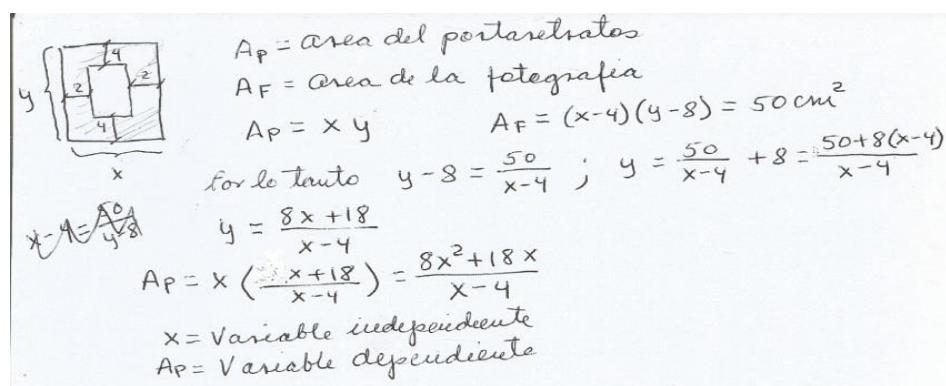 4
y 2 2
4
x
Ap = area del portaretratos
AF = area de la fotografia
Ap = x y   AF = (x-4)(y-8) = 50 cm²
Por lo tanto y-8 = 50/(x-4) ; y = 50/(x-4) + 8 = (50+8(x-4))/(x-4)
y = (8x+18)/(x-4)
Ap = x ( (x+18)/(x-4) ) = (8x²+18x)/(x-4)
x = Variable independiente
Ap = Variable dependiente